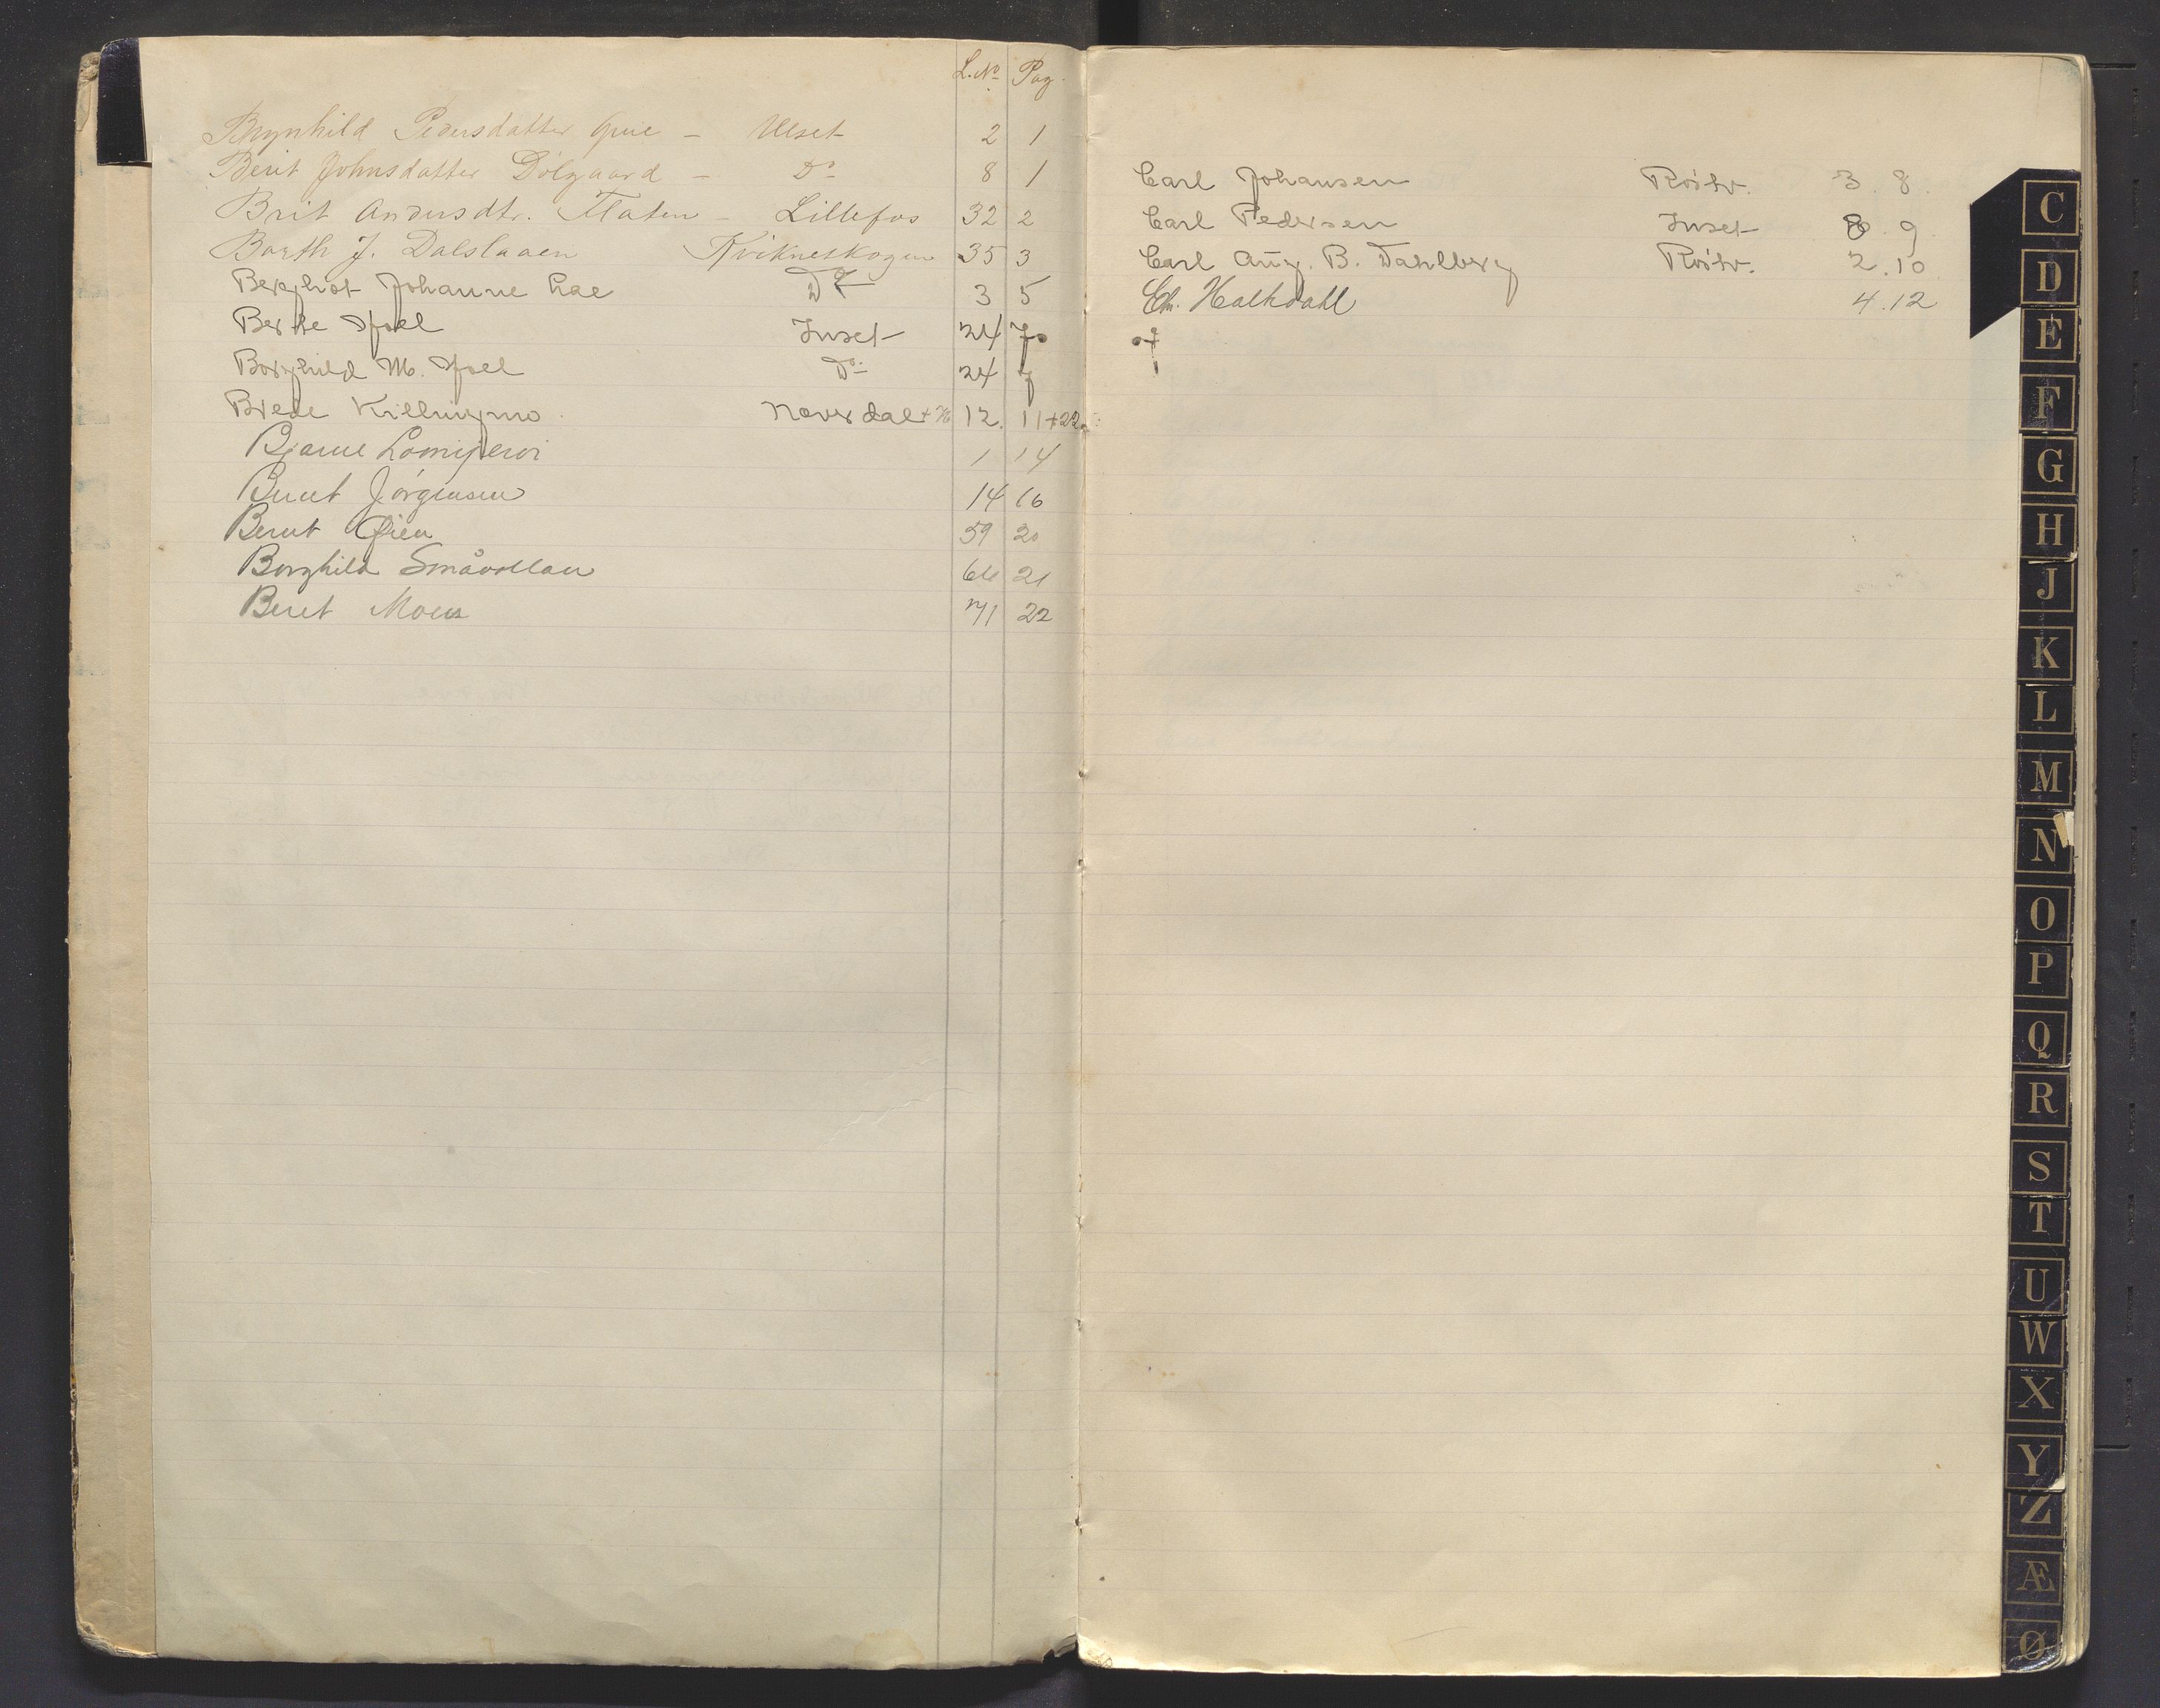 L. No Pag.
Brynhild Pedersdatter Grue - Ulset 2 1
Berit Johnsdatter Dölgaard - Do 8 1
Brit Andersdtr. Flaten - Lillefos 32 2
Barth J. Dalslaaen Kvikneskogen 35 3
Bergliot Johanne Lae Do 3 5
Berthe Inset 24 7
Borghild M. Do 24 7
Brede Killingmo Næverdal + 12. 11+22
Bjarne 1 14
Bernt Jörgensen 14 16
Bernt Øien 59 20
Borghild Småvollan 66 21
Beret Moen 71 22
Carl Johansen Röstv. 3. 8.
Carl Pedersen Inset 8. 9.
Carl Aug. B. Dahlberg Röstv. 2. 10.
Chr. 4. 12
C
D
E
F
G
H
J
K
L
M
N
O
P
Q
R
S
T
U
W
X
Y
Z
Æ
Ø